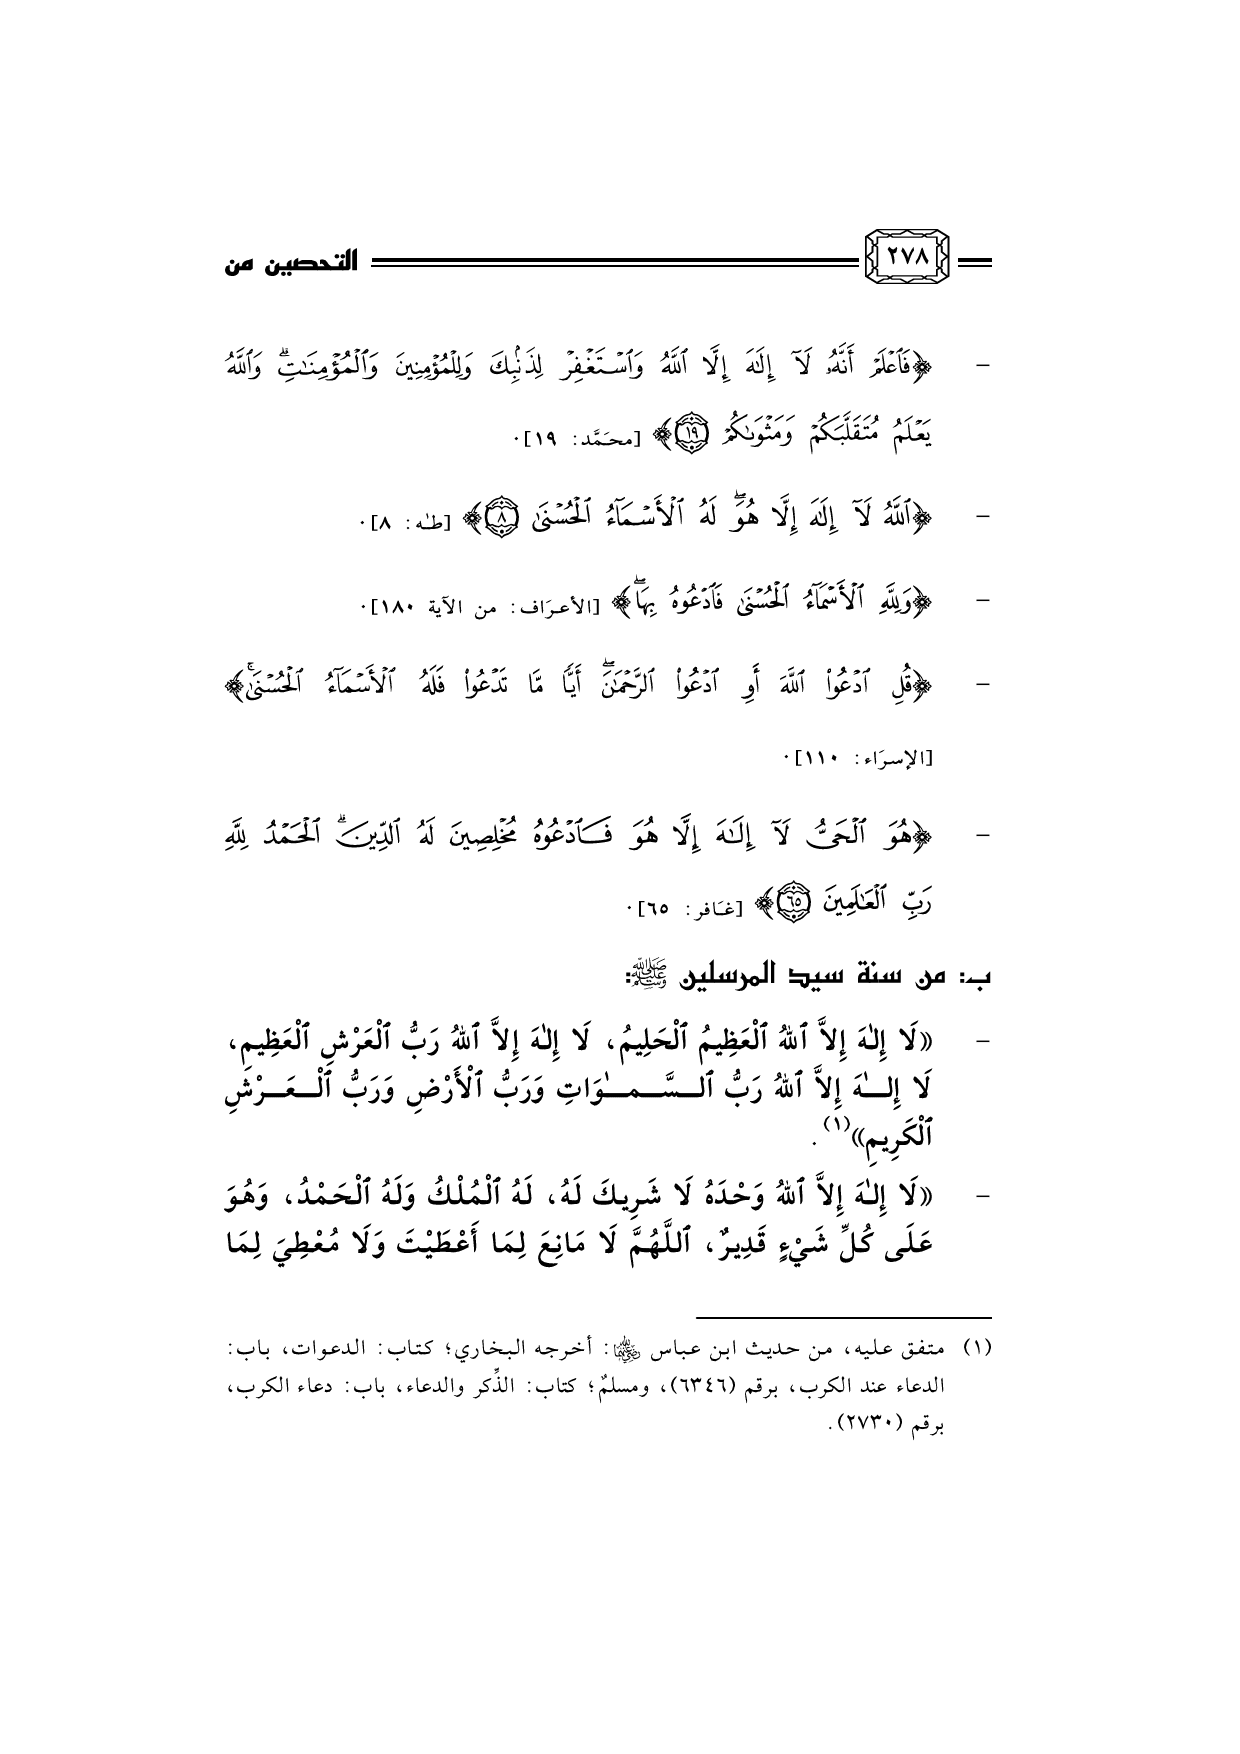 ٢٧٨ التحصين من
- ﴿فَٱعۡلَمۡ أَنَّهُۥ لَآ إِلَٰهَ إِلَّا ٱللَّهُ وَٱسۡتَغۡفِرۡ لِذَنۢبِكَ وَلِلۡمُؤۡمِنِينَ وَٱلۡمُؤۡمِنَٰتِۗ وَٱللَّهُ
يَعۡلَمُ مُتَقَلَّبَكُمۡ وَمَثۡوَىٰكُمۡ ١٩﴾ [محَمَّد: ١٩].
- ﴿ٱللَّهُ لَآ إِلَٰهَ إِلَّا هُوَۖ لَهُ ٱلۡأَسۡمَآءُ ٱلۡحُسۡنَىٰ ٨﴾ [طـٰه: ٨].
- ﴿وَلِلَّهِ ٱلۡأَسۡمَآءُ ٱلۡحُسۡنَىٰ فَٱدۡعُوهُ بِهَاۖ﴾ [الأعرَاف: من الآية ١٨٠].
- ﴿قُلِ ٱدۡعُواْ ٱللَّهَ أَوِ ٱدۡعُواْ ٱلرَّحۡمَٰنَۖ أَيّٗا مَّا تَدۡعُواْ فَلَهُ ٱلۡأَسۡمَآءُ ٱلۡحُسۡنَىٰۚ﴾
[الإسرَاء: ١١٠].
- ﴿هُوَ ٱلۡحَيُّ لَآ إِلَٰهَ إِلَّا هُوَ فَٱدۡعُوهُ مُخۡلِصِينَ لَهُ ٱلدِّينَۗ ٱلۡحَمۡدُ لِلَّهِ
رَبِّ ٱلۡعَٰلَمِينَ ٦٥﴾ [غَافر: ٦٥].
ب: من سنة سيد المرسلين ﷺ:
- «لَا إِلٰهَ إِلاَّ ٱللهُ ٱلْعَظِيمُ ٱلْحَلِيمُ، لَا إِلٰهَ إِلاَّ ٱللهُ رَبُّ ٱلْعَرْشِ ٱلْعَظِيمِ،
لَا إِلـٰهَ إِلاَّ ٱللهُ رَبُّ ٱلسَّمـٰوَاتِ وَرَبُّ ٱلْأَرْضِ وَرَبُّ ٱلْعَرْشِ
ٱلْكَرِيمِ»(١).
- «لَا إِلٰهَ إِلاَّ ٱللهُ وَحْدَهُ لَا شَرِيكَ لَهُ، لَهُ ٱلْمُلْكُ وَلَهُ ٱلْحَمْدُ، وَهُوَ
عَلَى كُلِّ شَيْءٍ قَدِيرٌ، ٱللَّهُمَّ لَا مَانِعَ لِمَا أَعْطَيْتَ وَلَا مُعْطِيَ لِمَا
(١) متفق عليه، من حديث ابن عباس رضي الله عنهما: أخرجه البخاري؛ كتاب: الدعوات، باب:
الدعاء عند الكرب، برقم (٦٣٤٦)، ومسلمٌ؛ كتاب: الذِّكر والدعاء، باب: دعاء الكرب،
برقم (٢٧٣٠).